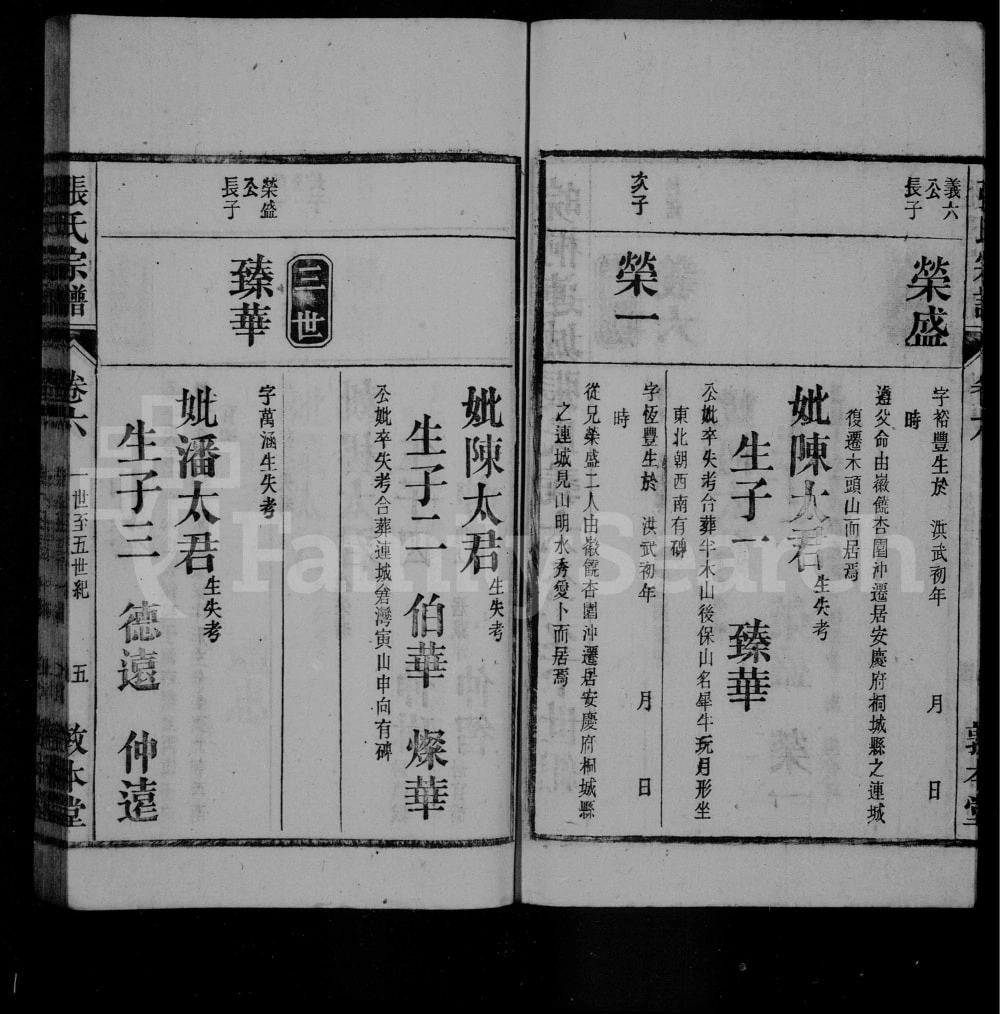 義六
公
長子
榮盛
字裕豐生於　洪武初年　月　日
時
遵父命由徽饒杏園沖遷居安慶府桐城縣之連城
復遷木頭山而居焉
妣陳太君生失考
生子一　臻華
公妣卒失考合葬半木山後保山名犀牛玩月形坐
東北朝西南有碑
次子
榮一
字恆豐生於　洪武初年　月　日
時
從兄榮盛二人由徽饒杏園沖遷居安慶府桐城縣
之連城見山明水秀愛卜而居焉
妣陳太君生失考
生子二　伯華　燦華
公妣卒失考合葬連城倉灣寅山申向有碑
三世
榮盛
公
長子
臻華
字萬涵生失考
妣潘太君生失考
生子三　德遠　仲遠
張氏宗譜
卷六
一世至五世紀
五
敦本堂
FamilySearch